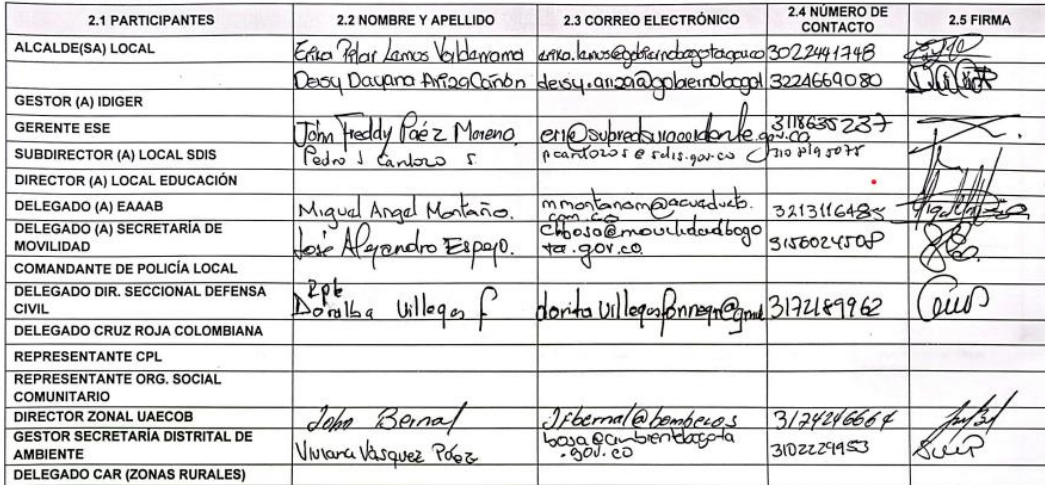 2.1 PARTICIPANTES 2.2 NOMBRE Y APELLIDO 2.3 CORREO ELECTRÓNICO 2.4 NÚMERO DE CONTACTO 2.5 FIRMA
ALCALDE(SA) LOCAL Erika Pilar Lamos Valderrama erika.lamos@gobiernobogota.gov.co 3022441748
Deisy Dayana Ariza Cañón deisy.ariza@gobiernobogot 3224669080
GESTOR (A) IDIGER
GERENTE ESE John Freddy Páez Moreno. erie@subredsuroccidente.gov.co 3118635237
SUBDIRECTOR (A) LOCAL SDIS Pedro J Cardozo S pcardozos@sdis.gov.co 310 8195075
DIRECTOR (A) LOCAL EDUCACIÓN
DELEGADO (A) EAAAB Miguel Angel Montaño. mmontanom@acueducto.
com.co 3213116485
DELEGADO (A) SECRETARÍA DE
MOVILIDAD José Alejandro Espejo. clbosa@movilidadbogo
ta.gov.co 3156024508
COMANDANTE DE POLICÍA LOCAL
DELEGADO DIR. SECCIONAL DEFENSA
CIVIL Doralba Villegas F 3172189962
DELEGADO CRUZ ROJA COLOMBIANA
REPRESENTANTE CPL
REPRESENTANTE ORG. SOCIAL
COMUNITARIO
DIRECTOR ZONAL UAECOB John Bernal Jfbernal@bomberos 3174246664
GESTOR SECRETARÍA DISTRITAL DE
AMBIENTE Viviana Vásquez Páez bosa@ambientebogota
.gov.co 3102229953
DELEGADO CAR (ZONAS RURALES)